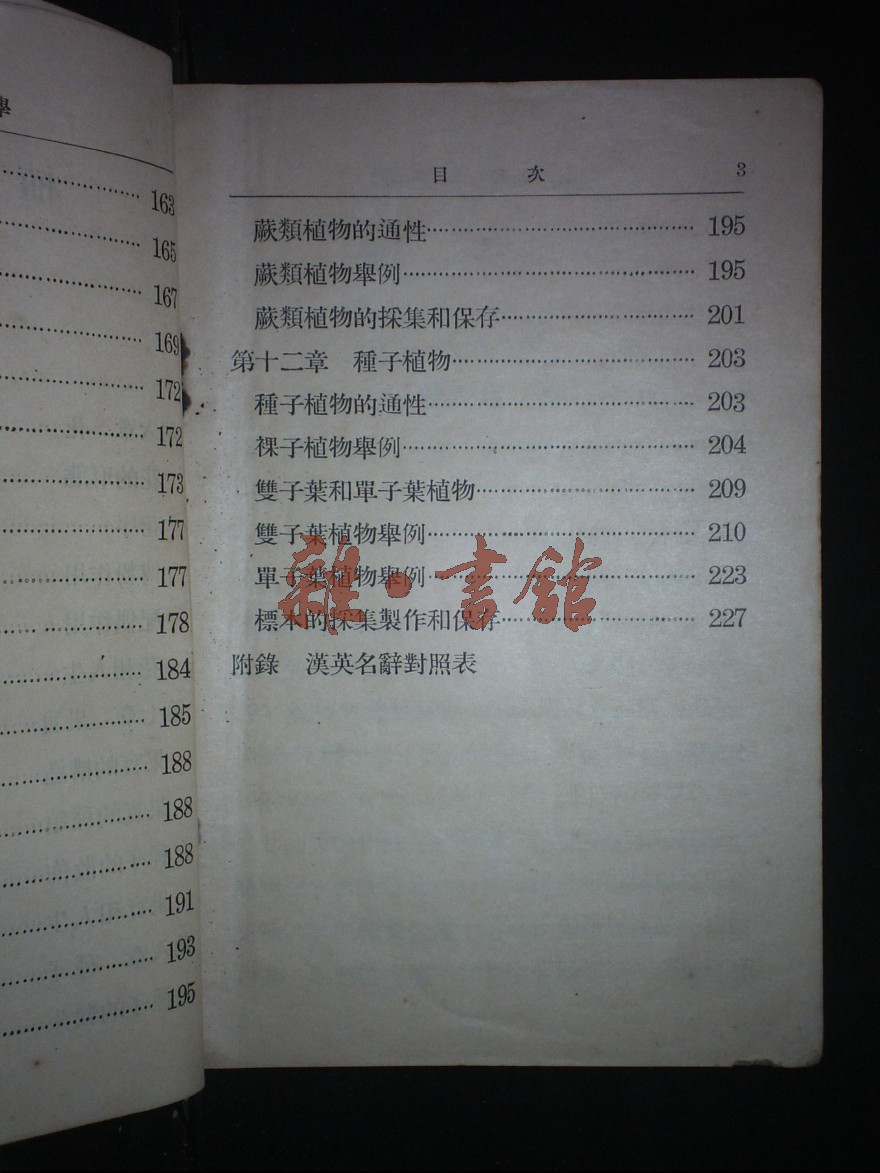 學
163
165
167
169
172
172
173
177
177
178
184
185
188
188
188
191
193
195
目 次 3
蕨類植物的通性 195
蕨類植物舉例 195
蕨類植物的採集和保存 201
第十二章 種子植物 203
種子植物的通性 203
裸子植物舉例 204
雙子葉和單子葉植物 209
雙子葉植物舉例 210
單子葉植物舉例 223
標本的採集製作和保存 227
附錄 漢英名辭對照表
雜·書館